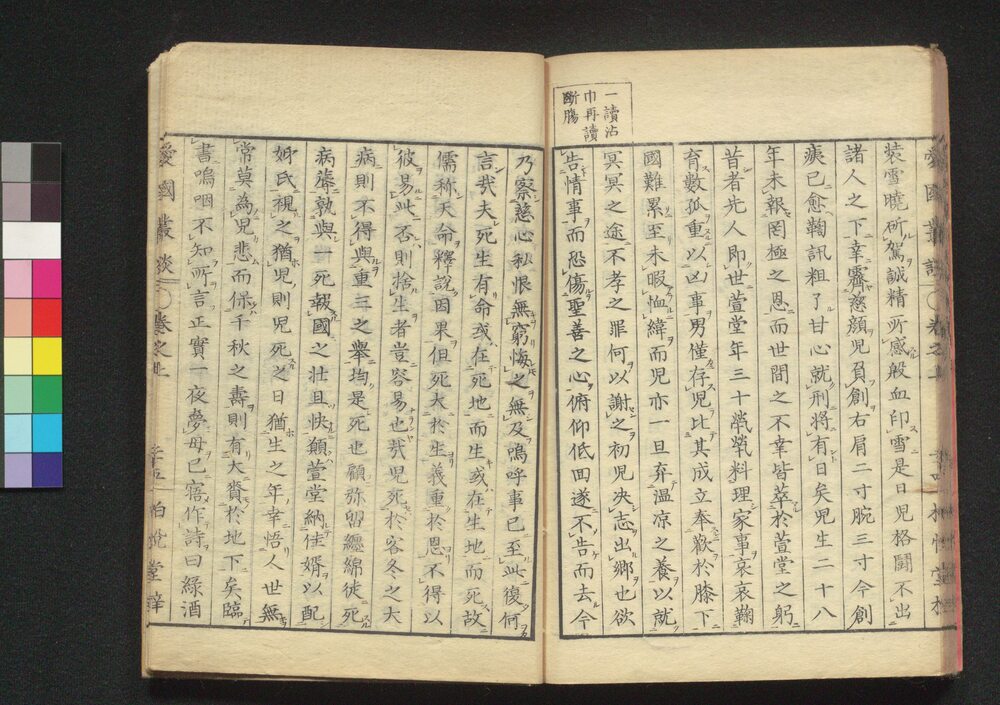 愛國叢談〇卷之上
一讀沾
巾再讀
断腸
装雪曉所駕誠精所感般血印雪是日児格闘不出
諸人之下幸霽慈顔児負創右肩二寸腕三寸今創
痍已愈鞠訊粗了甘心就刑將有日矣児生二十八
年未報罔極之恩而世間之不幸皆萃於萱堂之躬
昔者先人即世萱堂年三十煢煢料理家事哀哀鞠
育數孤重以凶事男僅存児比其成立奉歡於膝下
國難累至未暇恤緯而児亦一旦弃温凉之養以就
冥冥之途不孝之罪何以謝之初児决志出郷也欲
告情事而恐傷聖善之心俯仰低回遂不告而去今
乃察慈心私恨無窮悔之無及嗚呼事已至此復何
言哉夫死生有命或在死地而生或在生地而死故
儒称天命釋説因果但死大於生義重於恩不得以
彼易此否則捨生者豈容易也哉児死於客冬之大
病則不得與重三之舉均是死也顧弥留纏綿徒死
病蓐孰與一死報國之壮且快願萱堂納佳婿以配
姊氏視之猶児則児死之日猶生之年幸悟人世無
常莫為児悲而保千秋之壽則有大賚於地下矣臨
書嗚咽不知所言正實一夜夢母已寤作詩曰緑酒
愛國叢談〇卷之上 柏悅堂梓